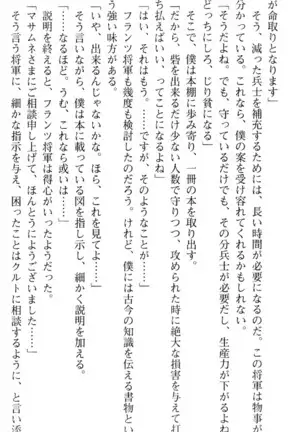 が命取りとなります」
そう、減った兵士を補充するためには、長い時間が必要になるのだ。この将軍は物事が
分かっている。これなら、僕の案を受け容れてくれるかもしれない。
「そうだよね。でも、守っているだけでも、その分兵士が必要だし、生産力が下がるよね
どっちにしろ、じり貧になる」
そこで僕は本棚に歩み寄り、一冊の本を取り出す。
「だから、砦を出来るだけ少ない人数で守りつつ、攻められた時に絶大な損害を与えて打
ち払えばいい、ってことになるよね」
「はい、それはもう。……ですが、そのようなことが……」
フランツ将軍も幾度も検討したのだろう。けれど、僕には古今の知識を伝える書物とい
う強い味方がある。
「出来るんじゃないかな。ほら、これを見てよ……」
そう言いながら、僕は本に載っている図を指し示し、細かく説明を加える。
「……なるほど、うむ、これなら或いは……」
説明を終えると、フランツ将軍は得心がいったようだった。
「マサムネさまにご相談申し上げて、ほんとうにようございました……」
そう言う将軍に、細かな指示を与え、困ったことはクルトに相談するように、と言い添